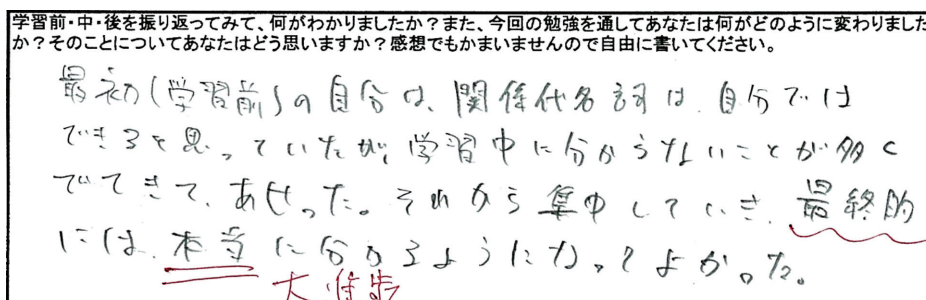 学習前・中・後を振り返ってみて、何がわかりましたか？また、今回の勉強を通してあなたは何がどのように変わりました
か？そのことについてあなたはどう思いますか？感想でもかまいませんので自由に書いてください。
最初(学習前)の自分は、関係代名詞は、自分では
できると思っていたが、学習中に分からないことが多く
でてきて、あせった。それから集中していき、最終的
には、本当に分かるようになってよかった。
大進歩